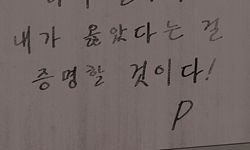 내가 옳았다는 걸
증명할 것이다!
P